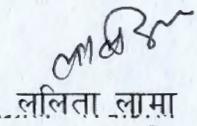 ललिता लामा